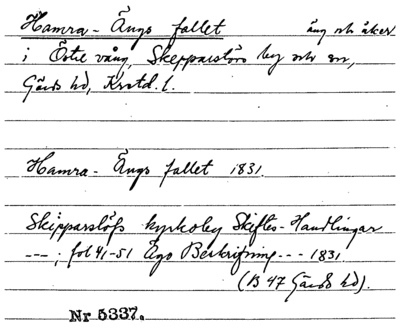 Hamra-Ängs fallet äng och åker
i Östre vång, Skepparslövs by och sn,
Gärds hd, Krstd. l.
Hamra-Ängs fallet 1831.
Skipparslöfs kyrkoby Skiftes-Handlingar
---; fol 41-51 Ägo Beskrifning --- 1831
(B 47 Gärds hd).
Nr 5337.